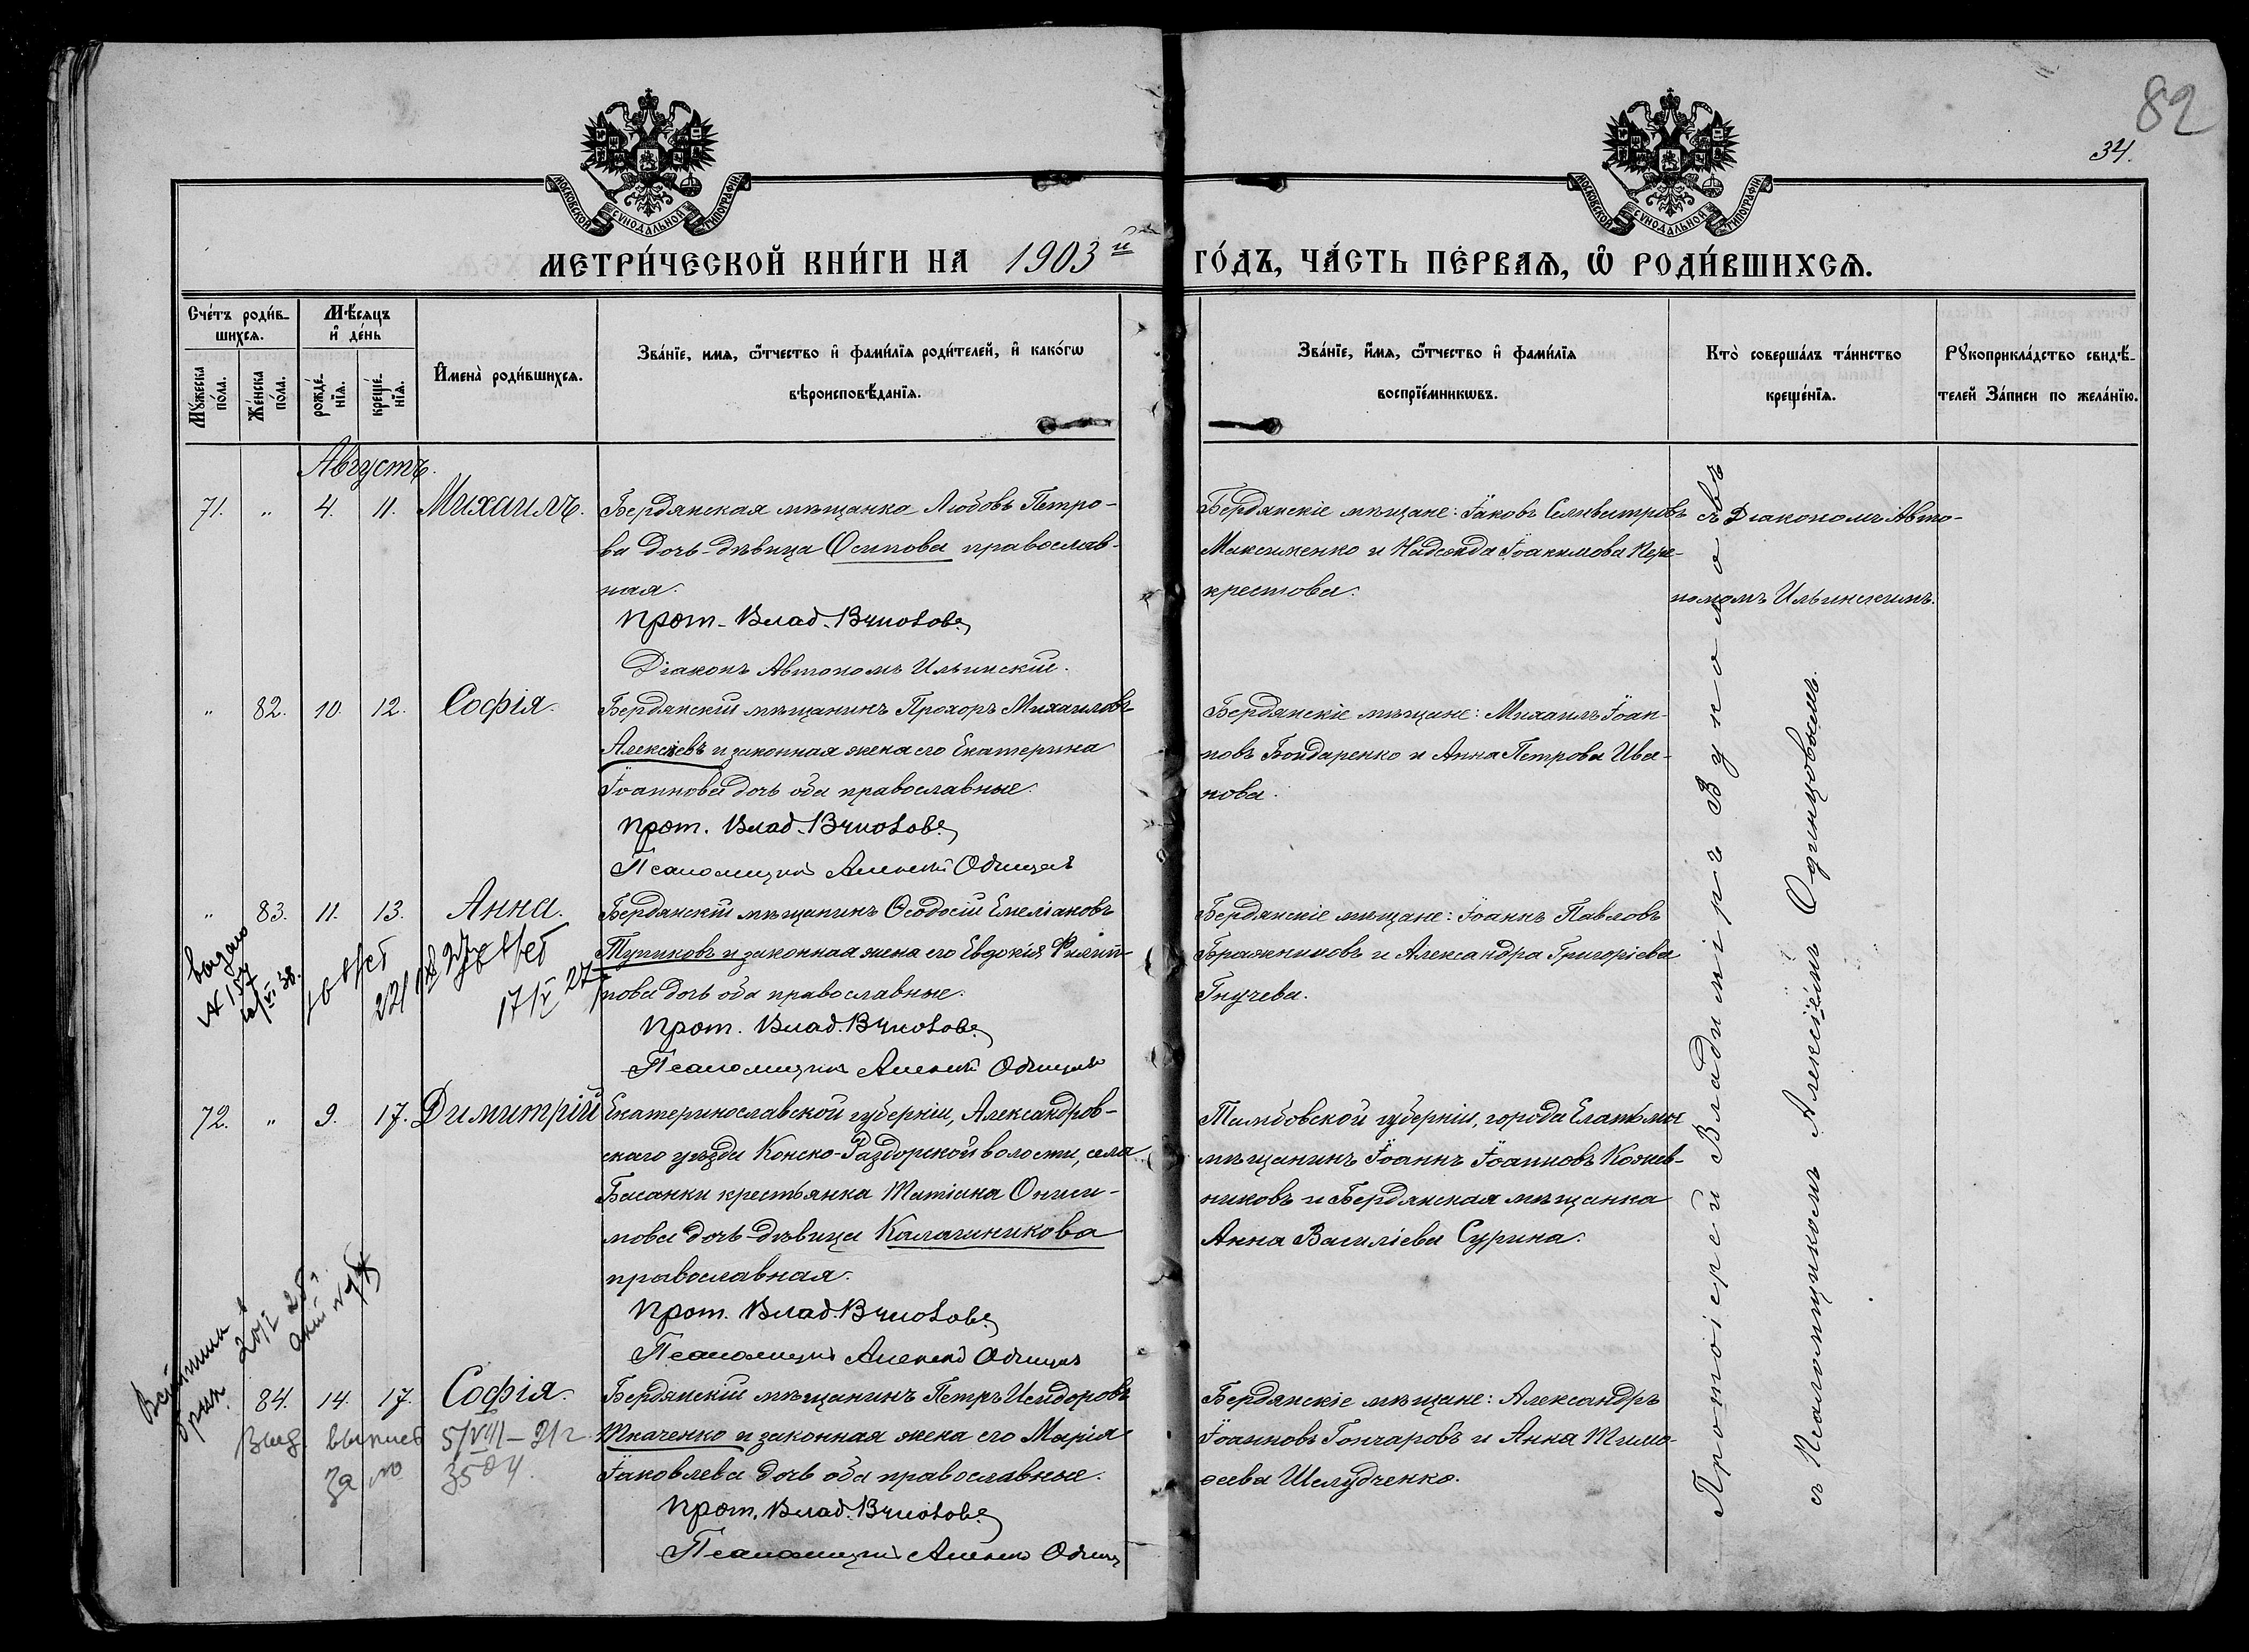 82
34.
МОСКОВСКОЙ СѴНОДАЛЬНОЙ ТИПОГРАФІИ
МОСКОВСКОЙ СѴНОДАЛЬНОЙ ТИПОГРАФІИ
МЕТРИ́ЧЕСКОЙ КНИ́ГИ НА 1903й ГО́ДЪ, ЧА́СТЬ ПЕ́РВАѦ, Ѡ РОДИ́ВШИХСѦ.
Сче́тъ роди́в-
шихсѧ.
Мѣ́сѧцъ
и҆ де́нь
Мꙋ́жеска
по́ла.
Же́нска
по́ла.
рожде́-
нїѧ.
креще́-
нїѧ.
И҆мена̀ роди́вшихсѧ.
Зва́нїе, имѧ, ѻ҆́тчество и҆ фами́лїѧ роди́телей, и҆ како́гѡ
вѣроисповѣ́данїѧ.
Зва́нїе, и҆́мѧ, ѻ҆́тчество и҆ фами́лїѧ
воспрїе́мникѡвъ.
Кто̀ соверша́лъ та́инство
креще́нїѧ.
Рꙋкоприкла́дство свидѣ́-
телей За́писи по жела́нїю.
Августъ.
71. " 4. 11. Михаилъ.
Бердянская мѣщанка Любовь Петро-
ва дочь-дѣвица Осипова православ-
ная.
Прот. Влад. Вуколовъ
Діаконъ Автономъ Ильинскій.
Бердянскіе мѣщане: Іаковъ Селивестровъ
Максименко и Надежда Іоакимова Пере-
крестова.
съ Діакономъ Авто-
номомъ Ильинскимъ.
" 82. 10. 12. Софія.
Бердянскій мѣщанинъ Прохоръ Михаиловъ
Алексѣевъ и законная жена его Екатерина
Іоаннова дочь оба православные.
Прот. Влад. Вуколовъ
Псаломщикъ Алексѣй Одинцовъ
Бердянскіе мѣщане: Михаилъ Іоан-
новъ Бондаренко и Анна Петрова Ива-
нова.
" 83. 11. 13. Анна.
Бердянскій мѣщанинъ Ѳеодосій Емеліановъ
Тупиковъ и законная жена его Евдокія Филип-
пова дочь оба православные.
Прот. Влад. Вуколовъ
Псаломщикъ Алексѣй Одинцовъ
Бердянскіе мѣщане: Іоаннъ Павловъ
Бражниковъ и Александра Григоріева
Гнучева.
выдано
17/V 27
72. " 9. 17. Димитрій
Екатеринославской губерніи, Александров-
скаго уѣзда Конско-Раздорской волости, села
Басанки крестьянка Татіана Ониси-
мова дочь-дѣвица Калашникова
православная.
Прот. Влад. Вуколовъ
Псаломщикъ Алексѣй Одинцовъ
Тамбовской губерніи, города Елатьмы
мѣщанинъ Іоаннъ Іоанновъ Кожев-
никовъ и Бердянская мѣщанка
Анна Василіева Сурина.
84. 14. 17. Софія.
Бердянскій мѣщанинъ Петръ Исидоровъ
Ткаченко и законная жена его Марія
Іаковлева дочь оба православные.
Прот. Влад. Вуколовъ
Псаломщикъ Алексѣй Одинц
Бердянскіе мѣщане: Александръ
Іоанновъ Гончаровъ и Анна Тимо-
ѳеева Шелудченко.
Выд. выпись 5/VIII-21 г.
за № 3504.
Протоіерей Владиміръ Вуколовъ
съ Псаломщикомъ Алексіемъ Одинцовымъ.